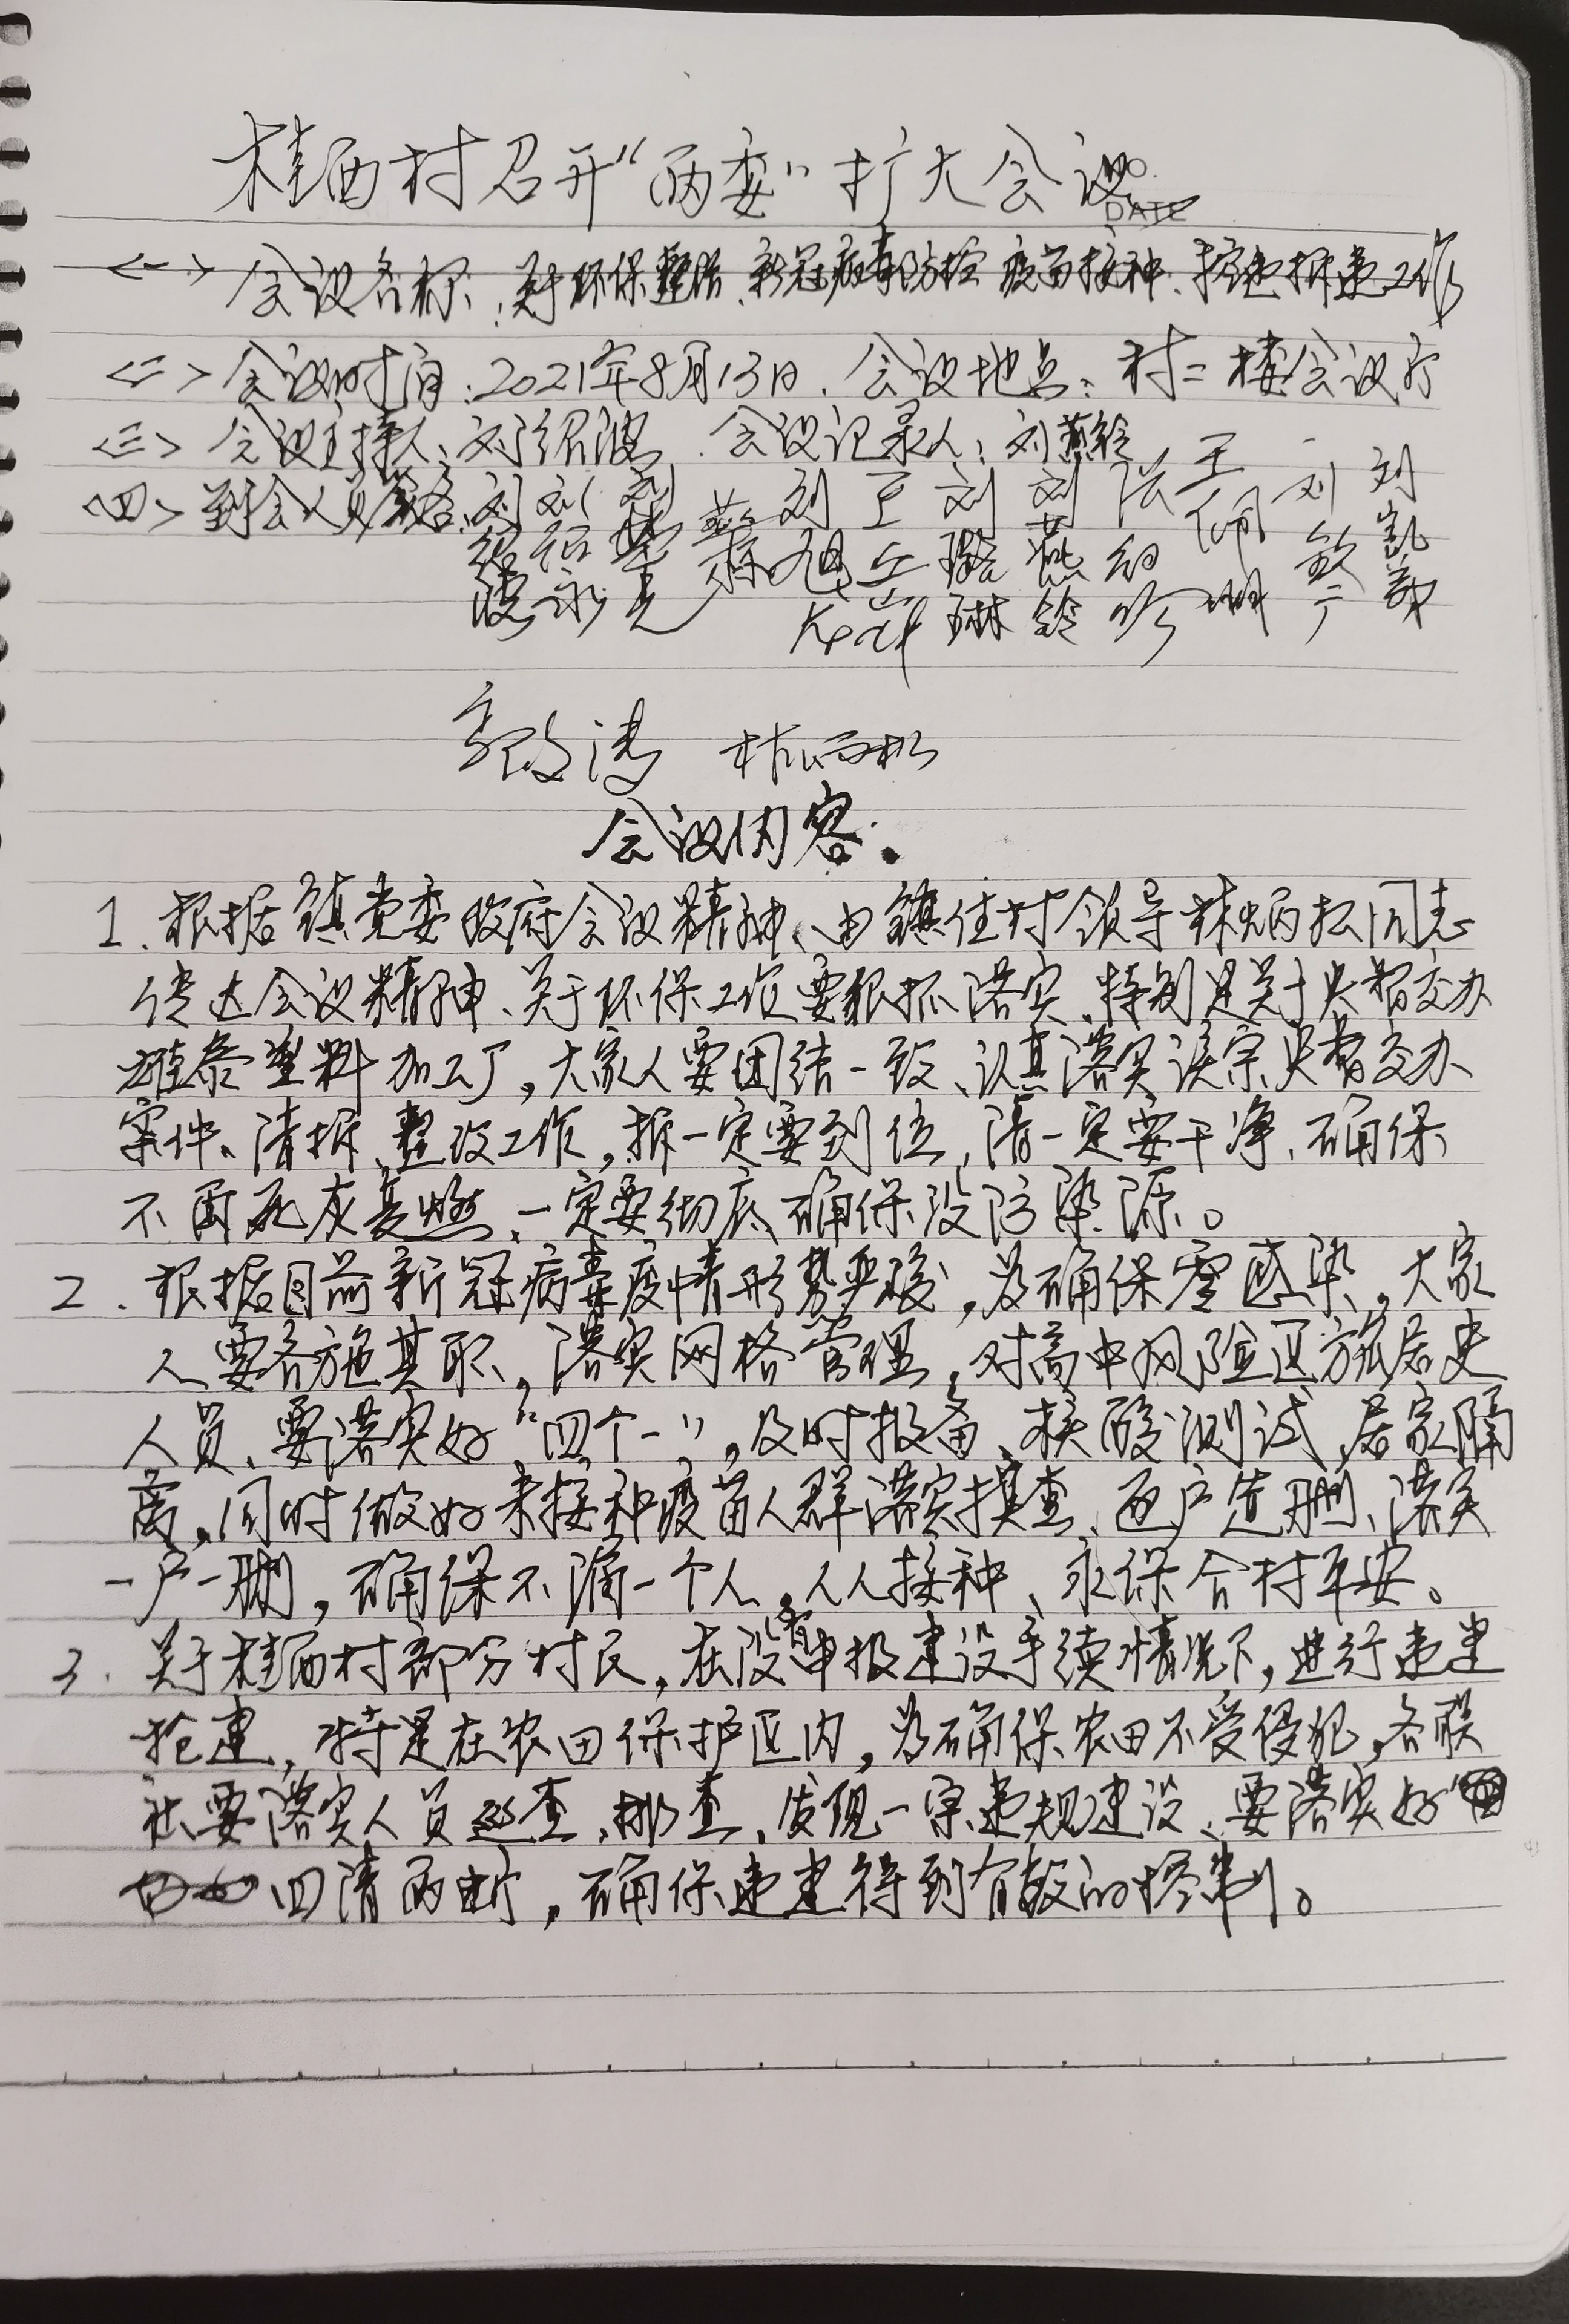 桂西村召开“两委”扩大会议
NO.
DATE
<一> 会议名称:对环保整治、新冠病毒防控、疫苗接种、控违拆违工作
<二> 会议时间:2021年8月13日. 会议地点:村二楼会议厅
<三> 会议主持人:刘绍波. 会议记录人:刘燕铃
<四> 到会人员签名:刘绍波 刘绍永 刘 刘旭 刘璐琳 刘燕铃 王佩珊 刘 刘凯
林炳松
会议内容:
1. 根据镇党委政府会议精神、由镇住村领导林炳松同志
传达会议精神、关于环保工作要狠抓落实、特别是关于央督交办
塑料加工厂,大家人要团结一致、认真落实该宗央督交办
案件、清拆、整改工作,拆一定要到位,清一定要干净、确保
不再死灰复燃、一定要彻底、确保没防染源。
2. 根据目前新冠病毒疫情形势严峻,为确保零感染,大家
人要各施其职、落实网格管理,对高中风险区旅居史
人员、要落实好“四个一”,及时报备、核酸测试、居家隔
离,同时做好未接种疫苗人群落实摸查、逐户造册、落实
一户一册,确保不漏一个人,人人接种、永保合村平安。
3. 关于桂西村部分村民,在没有申报建设手续情况下,进行违建
抢建,特是在农田保护区内,为确保农田不受侵犯,各联
社要落实人员巡查、排查、发现一宗违规建设、要落实好“
四清两断,确保违建得到有效的控制。